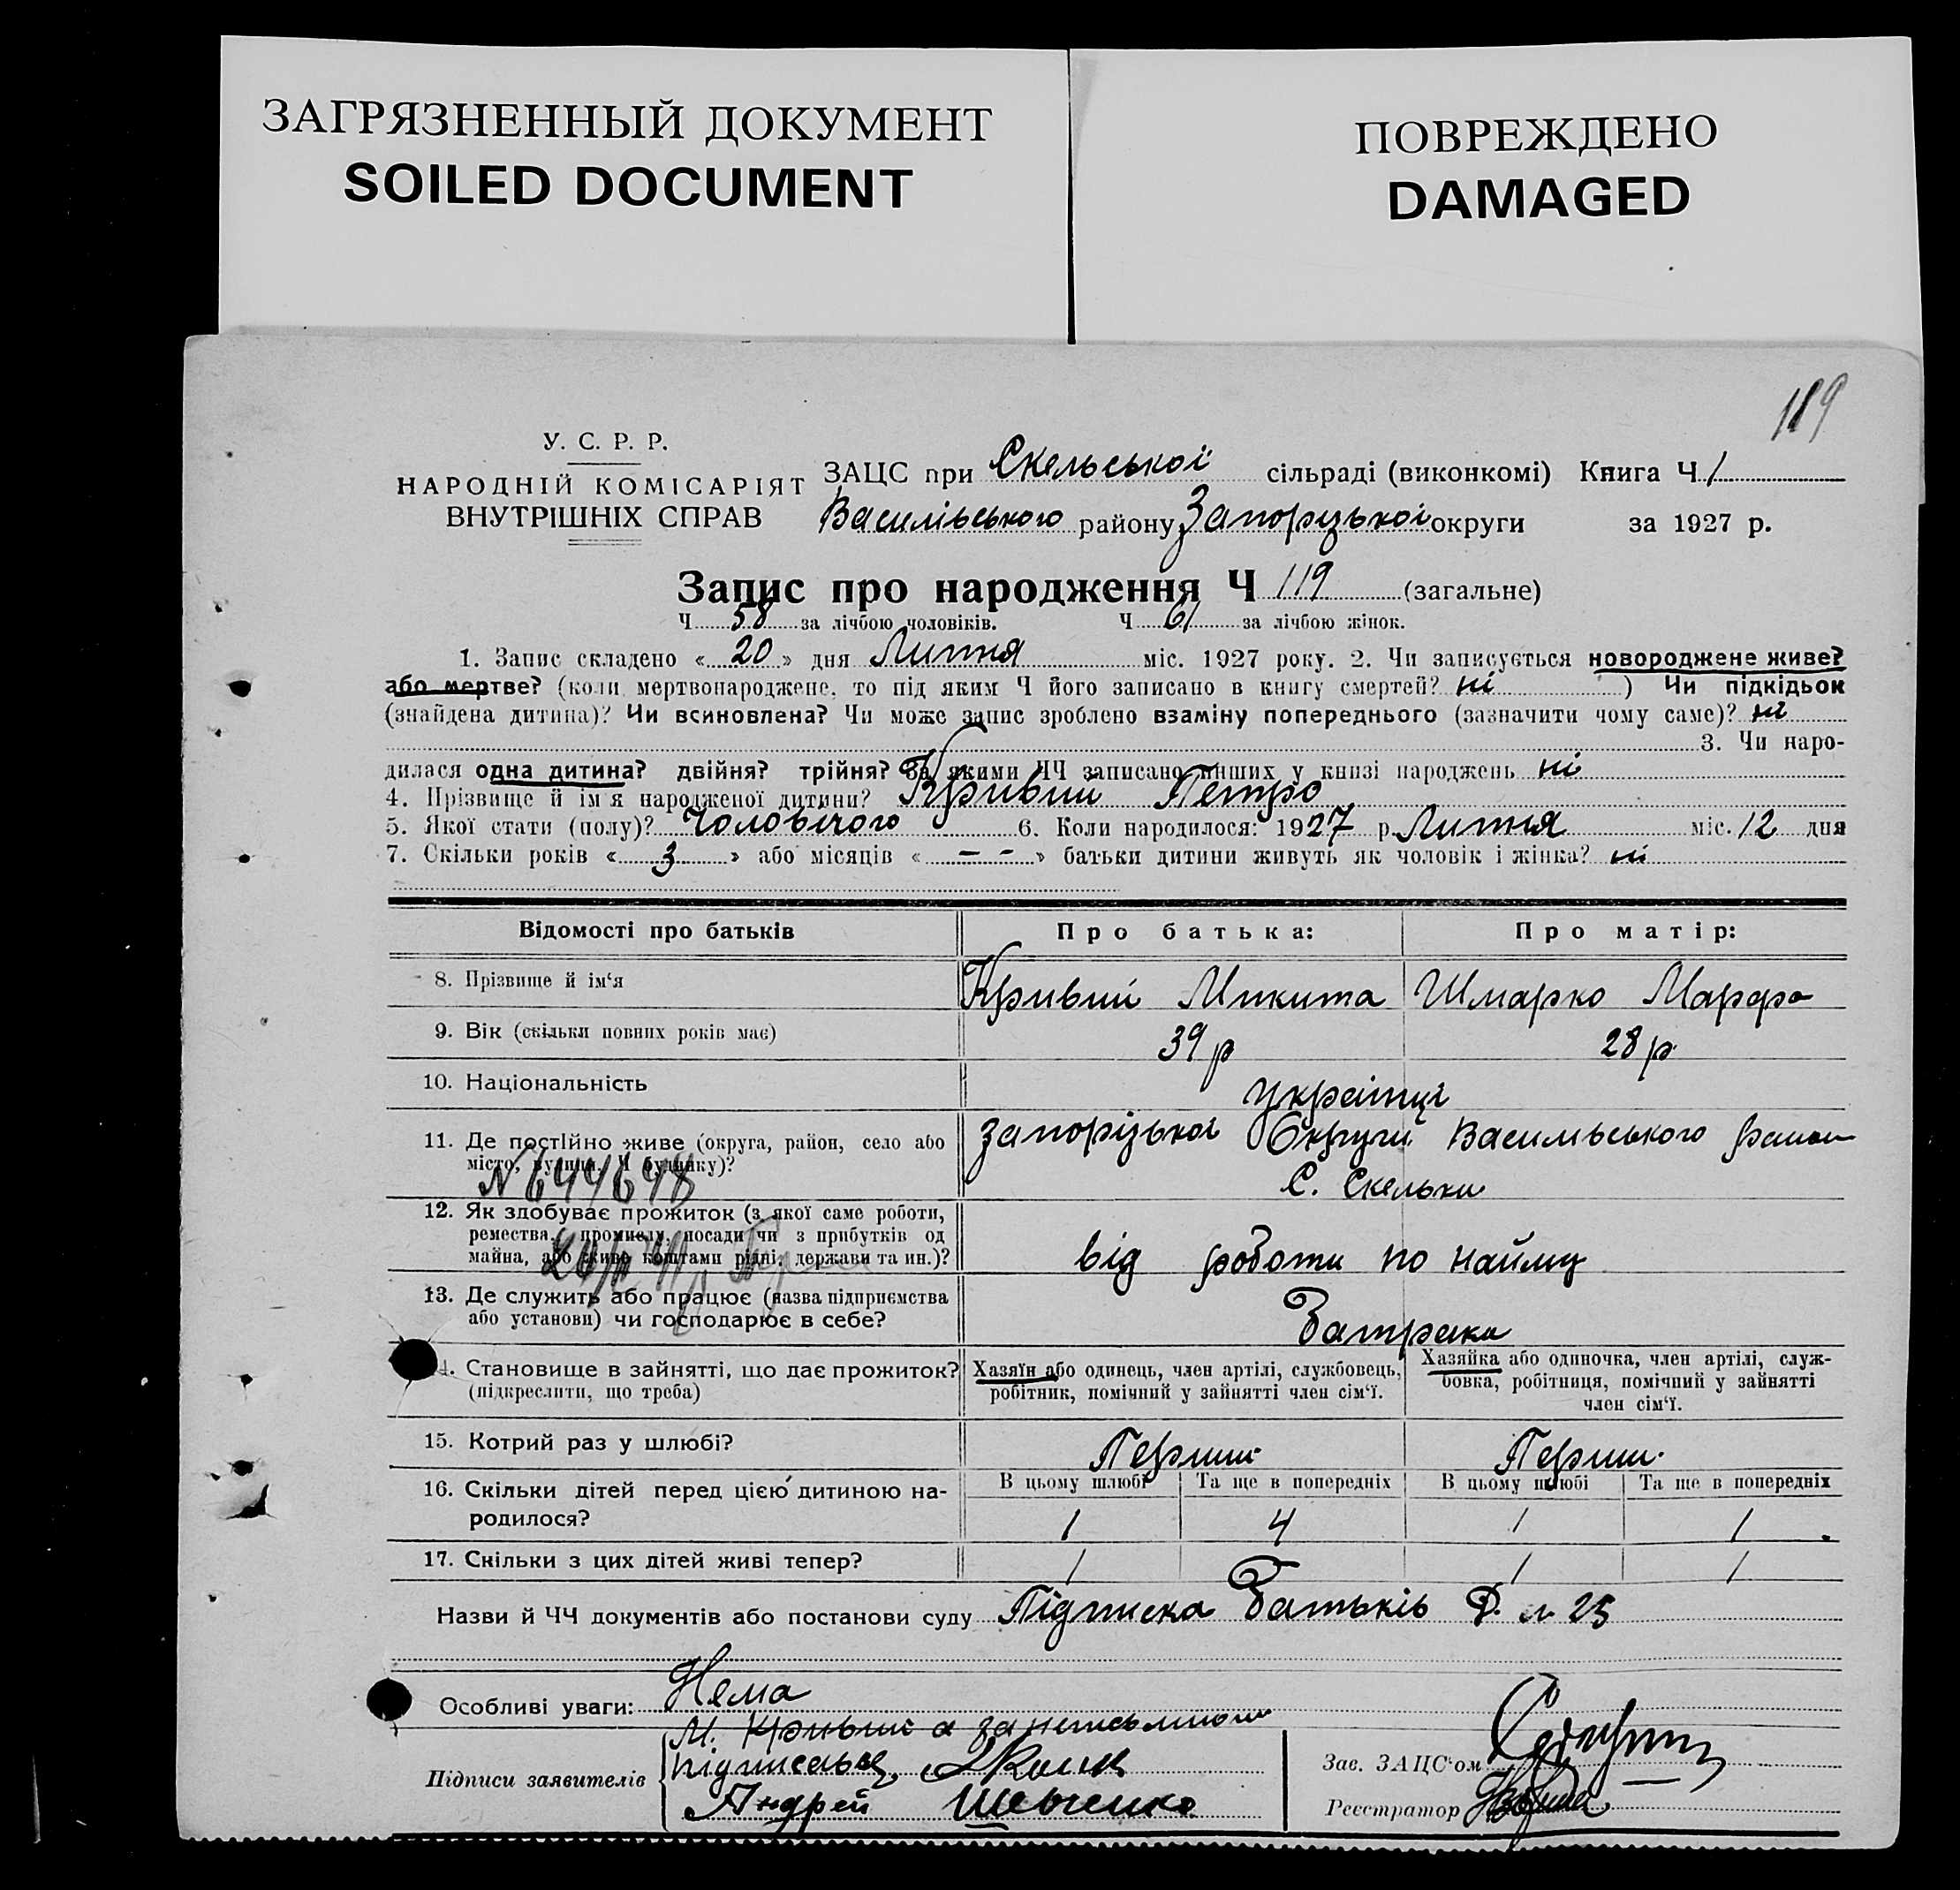 ЗАГРЯЗНЕННЫЙ ДОКУМЕНТ
SOILED DOCUMENT
ПОВРЕЖДЕНО
DAMAGED
119
У. С. Р. Р.
НАРОДНІЙ КОМІСАРІЯТ
ВНУТРІШНІХ СПРАВ
ЗАЦС при Скельської сільраді (виконкомі) Книга Ч 1
Василівського району Запорізької округи за 1927 р.
Запис про народження Ч 119 (загальне)
Ч 58 за лічбою чоловіків. Ч 61 за лічбою жінок.
1. Запис складено « 20 » дня Липня міс. 1927 року. 2. Чи записується новороджене живе?
або мертве? (коли мертвонароджене, то під яким Ч його записано в книгу смертей? ні ) Чи підкідьок
(знайдена дитина)? Чи всиновлена? Чи може запис зроблено взаміну попереднього (зазначити чому саме)? ні
3. Чи наро-
дилася одна дитина? двійня? трійня? За якими ЧЧ записано инших у книзі народжень ні
4. Прізвище й ім'я народженої дитини? Кривий Петро
5. Якої стати (полу)? Чоловічого 6. Коли народилося: 1927 р. Липня міс. 12 дня
7. Скільки років « 3 » або місяців « - - » батьки дитини живуть як чоловік і жінка? ні
Відомості про батьків Про батька: Про матір:
8. Прізвище й ім'я Кривий Микита Шмарко Марфа
9. Вік (скільки повних років має) 39 р 28 р.
10. Національність українці
11. Де постійно живе (округа, район, село або Запорізької Округи Василівського район
місто, вулиця, Ч будинку)? С. Скельки
N 644648
12. Як здобуває прожиток (з якої саме роботи,
ремества, промислу, посади чи з прибутків од
майна, або живе коштами рідні, держави та ин.)? від роботи по найму
13. Де служить або працює (назва підприємства
або установи) чи господарює в себе? Батраки
14. Становище в зайнятті, що дає прожиток? Хазяїн або одинець, член артілі, службовець, Хазяйка або одиночка, член артілі, служ-
(підкреслити, що треба) робітник, помічний у зайнятті член сім'ї. бовка, робітниця, помічний у зайнятті
член сім'ї.
15. Котрий раз у шлюбі? Перший Перший
В цьому шлюбі Та ще в попередніх В цьому шлюбі Та ще в попередніх
16. Скільки дітей перед цією дитиною на-
родилося? 1 4 1 1
17. Скільки з цих дітей живі тепер? 1 1 1
Назви й ЧЧ документів або постанови суду Підписка Батьків 25
Особливі уваги: Нема
М. Кривий а за неписьмного
Підписи заявителів підписався
Андрей Шевченко
Зав. ЗАЦС'ом
Реєстратор